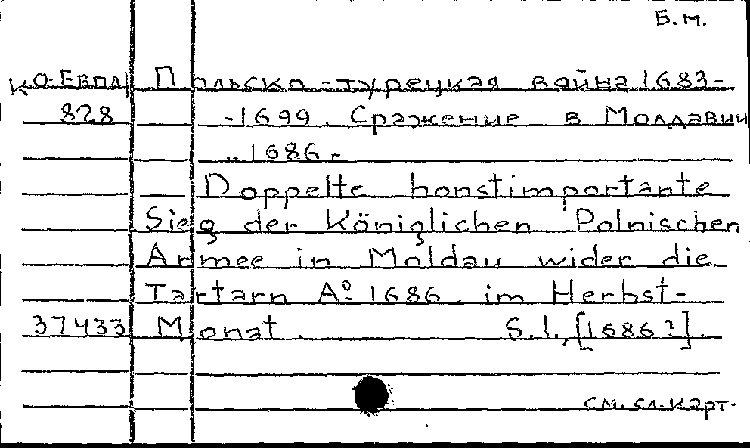 Б.М.
Ю-Евпа Польско-турецкая война 1683-
828 -1699. Сражение в Молдавии
1686.
Doppelte honstimportante
Sieg der Königlichen Polnischen
Armee in Moldau wider die
Tartarn Aº 1686 im Herbst-
37433 Monat. S.l., [1686?].
см. сл. карт.